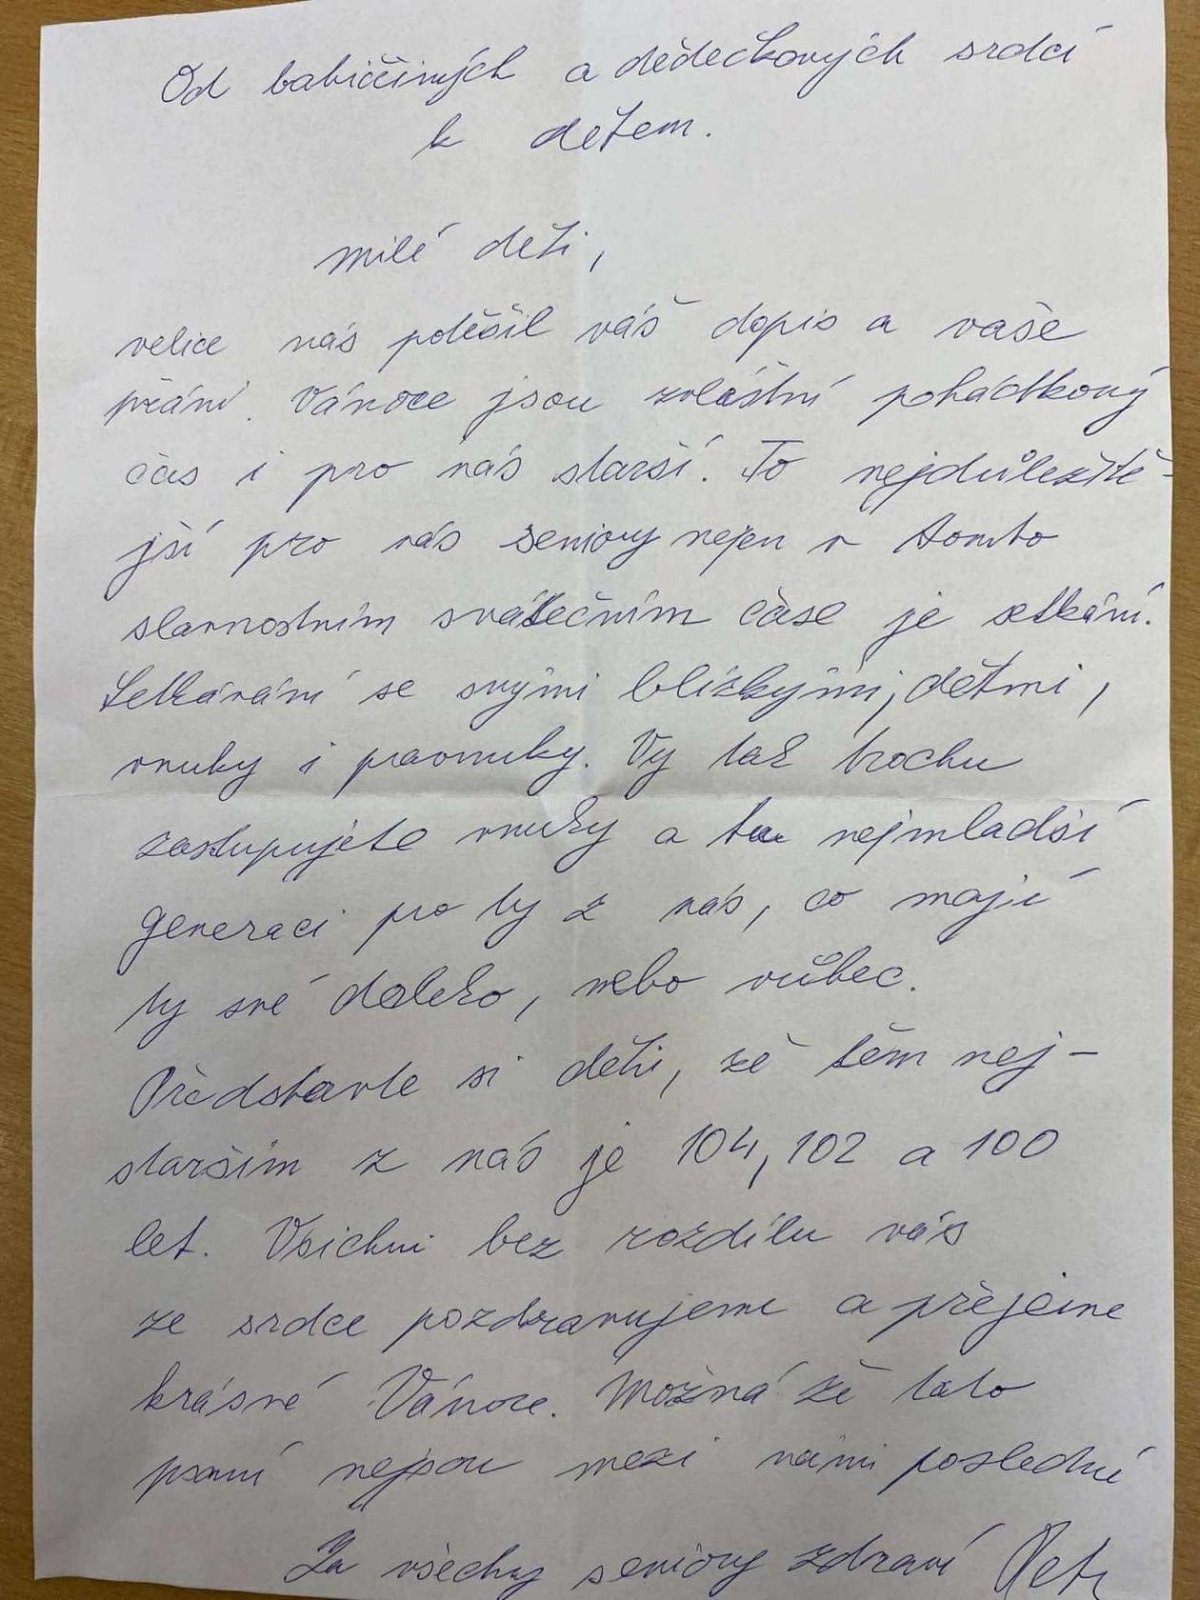 Od babiččiných a dědečkových srdcí
k dětem.
Milé děti,
velice nás potěšil váš dopis a vaše
přání. Vánoce jsou zvláštní pohádkový
čas i pro nás starší. To nejdůležitě-
jší pro nás seniory nejen v tomto
slavnostním svátečním čase je setkání.
Setkávání se svými blízkými, dětmi,
vnuky i pravnuky. Vy tak trochu
zastupujete vnuky a tu nejmladší
generaci pro ty z nás, co mají
ty své daleko, nebo vůbec.
Představte si děti, že těm nej-
starším z nás je 104, 102 a 100
let. Všichni bez rozdílu vás
ze srdce pozdravujeme a přejeme
krásné Vánoce. Možná že tato
psaní nejsou mezi námi poslední
Za všechny seniory zdraví Petr